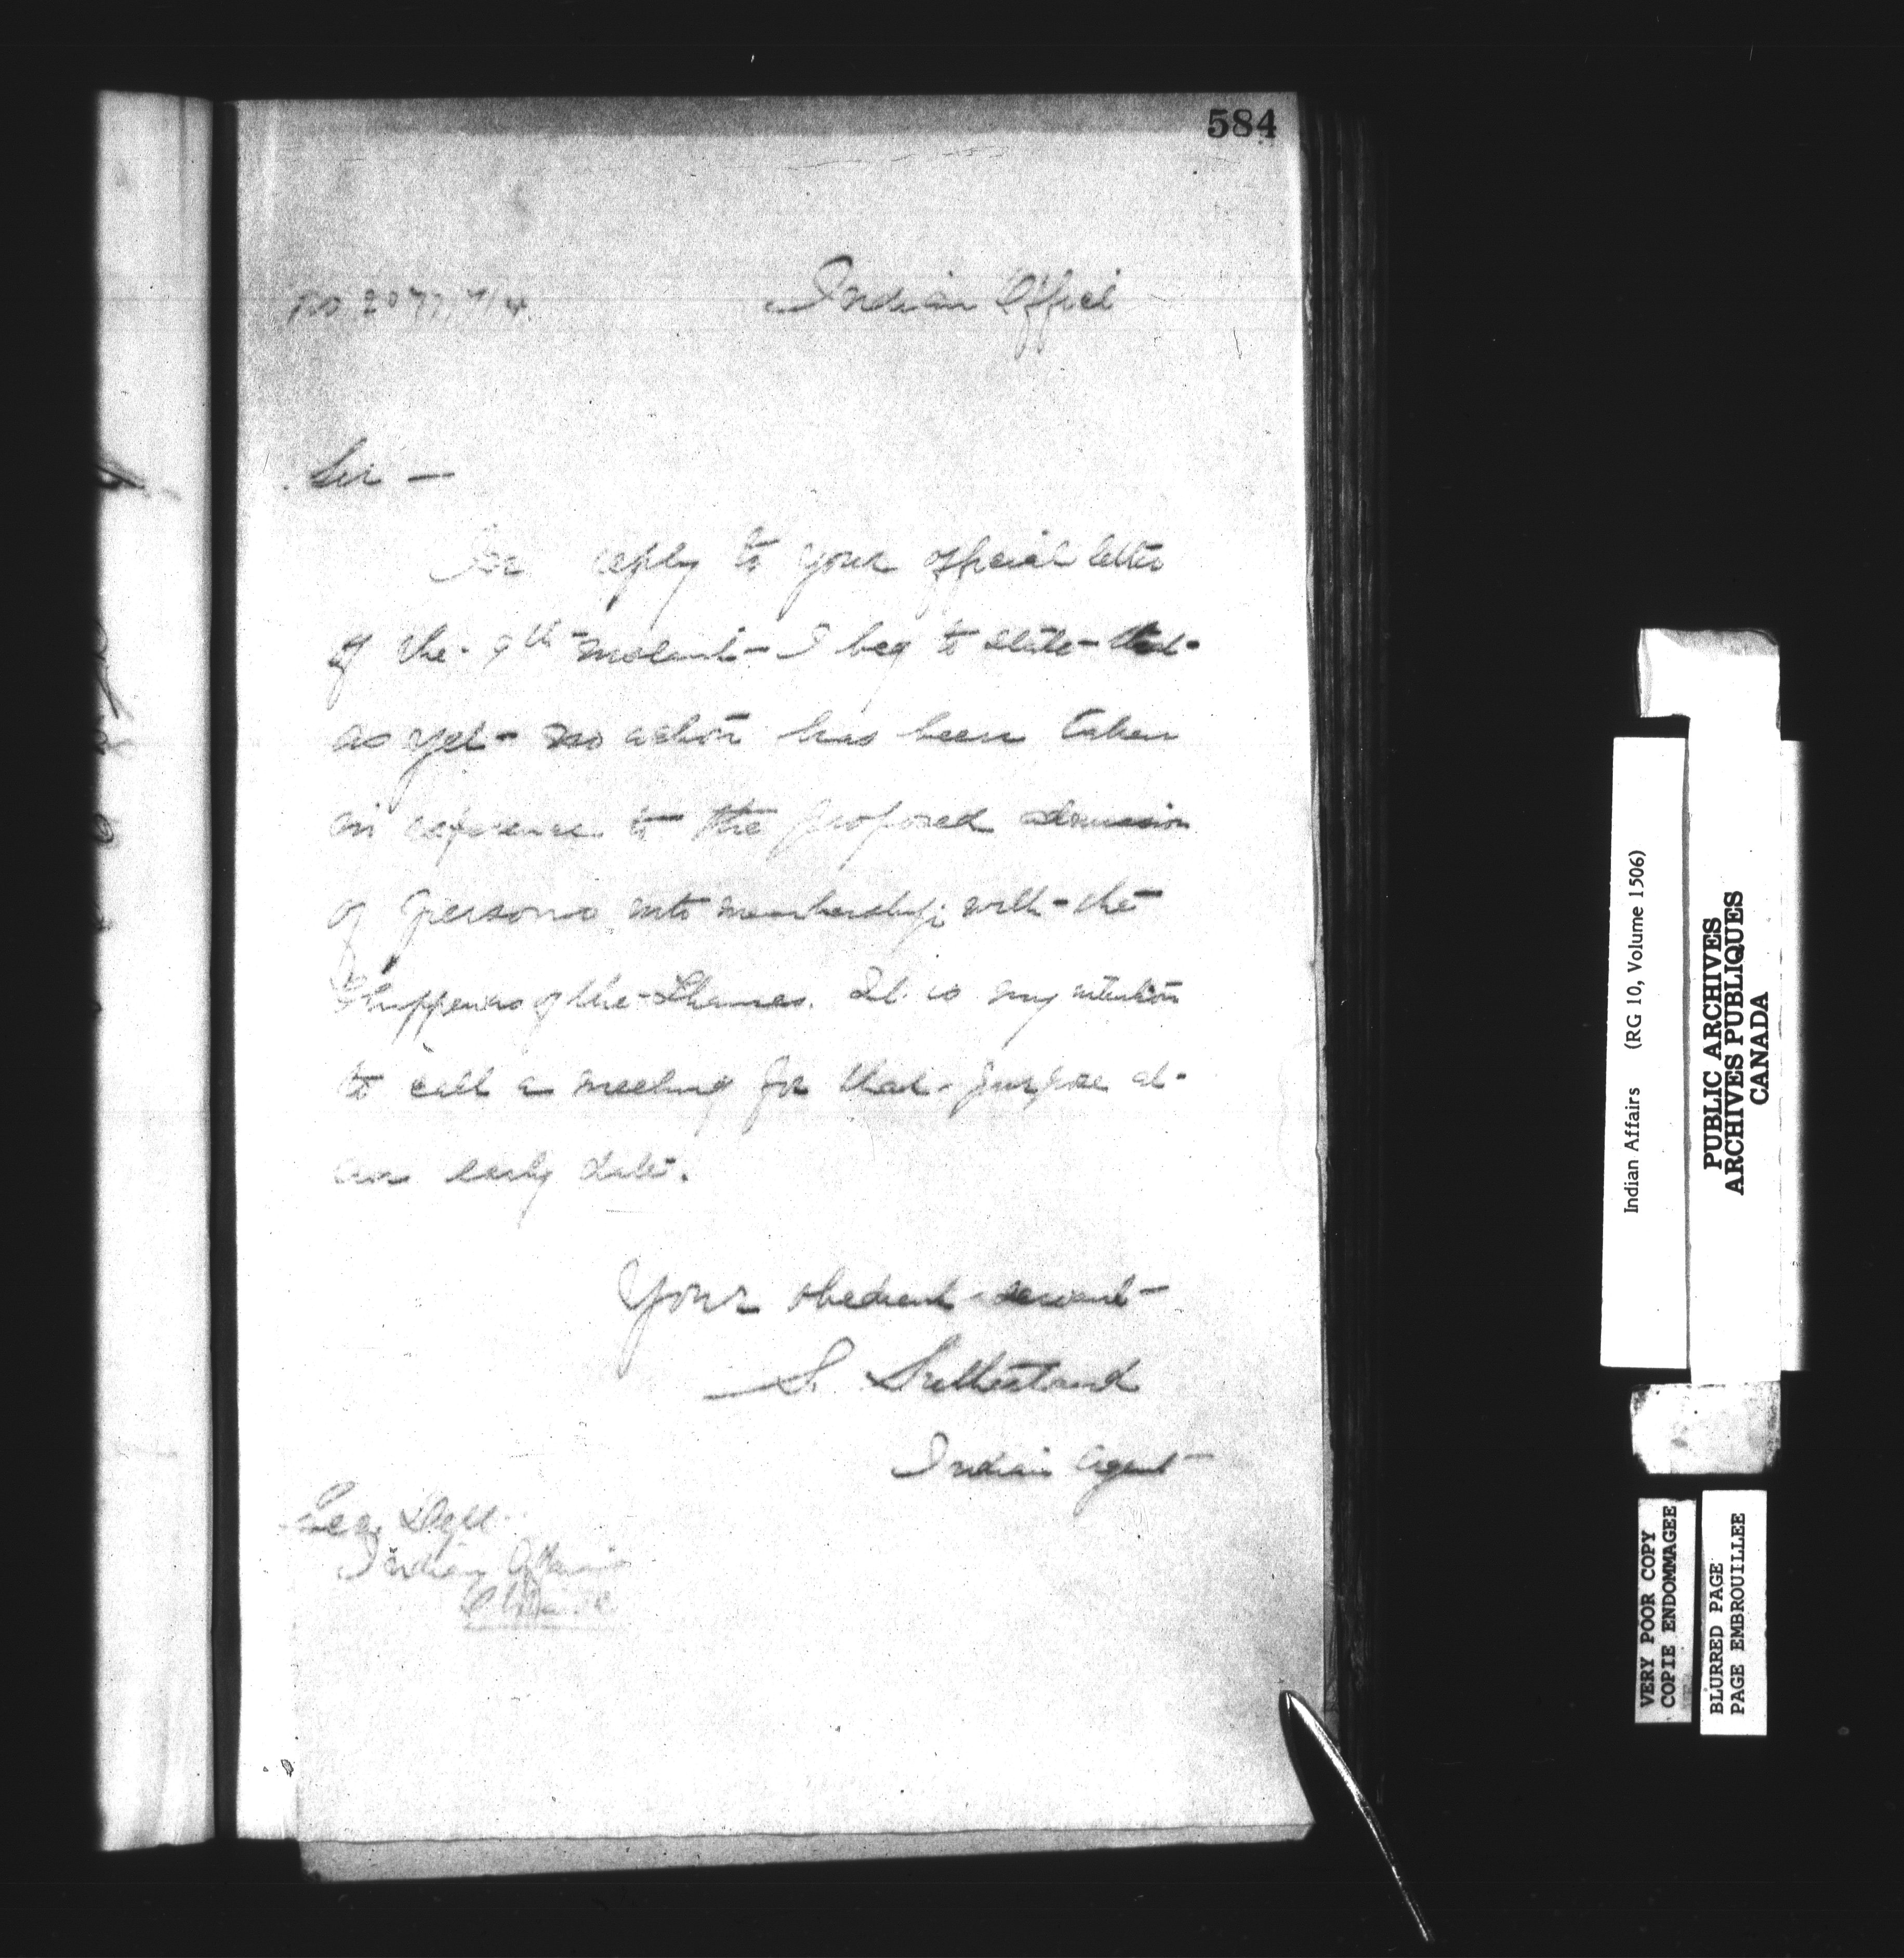 584
Indian Office
Sir —
In reply to your official letter
of the 9th instant I beg to state that
as yet no action has been taken
in reference to the proposed admission
of persons into membership with the
Chippewas of the Thames. It is my intention
to call a meeting for that purpose at
an early date.
Your obedient servant
S. Sutherland
Indian Agent
Indian Affairs
Ottawa
Indian Affairs (RG 10, Volume 1506)
PUBLIC ARCHIVES
ARCHIVES PUBLIQUES
CANADA
VERY POOR COPY
COPIE ENDOMMAGEE
BLURRED PAGE
PAGE EMBROUILLEE